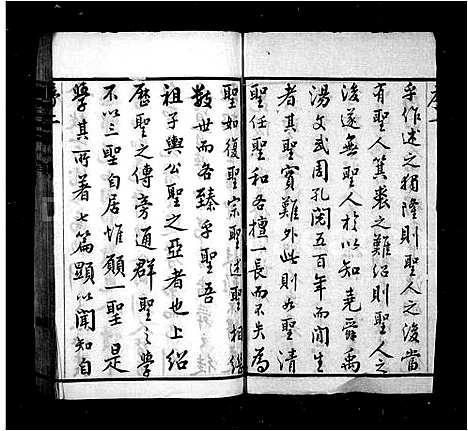 序一
乎作述之獨隆則聖人之後當
有聖人箕裘之難紹則聖人之
後遂無聖人於以知堯舜禹
湯文武周孔閱五百年而間生
者其聖實難外此則如聖清
聖任聖和各擅一長而不失為
聖如復聖宗聖述聖相繼
數世而各臻乎聖吾
祖子輿公聖之亞者也上紹
歷聖之傳旁通群聖之學
不以三聖自居惟願一聖是
學其所著七篇顯以聞知自